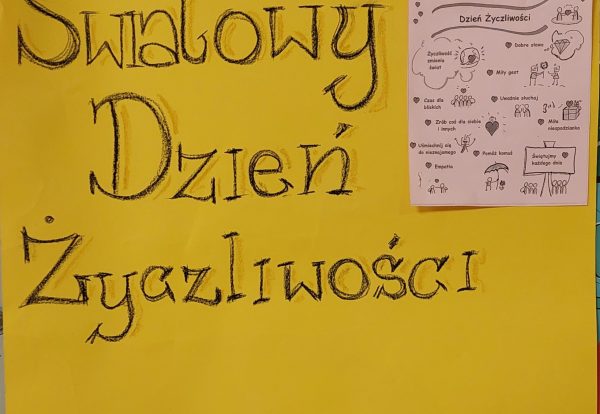 Światowy
Dzień
Życzliwości
Dzień Życzliwości
Życzliwość
zmienia
świat
Dobre słowo
Miły gest
Czas dla
bliskich
Uważnie słuchaj
Zrób coś dla siebie
i innych
Miła
niespodzianka
Uśmiechnij się
do nieznajomego
Pomóż komuś
Empatia
Świętujmy
każdego dnia